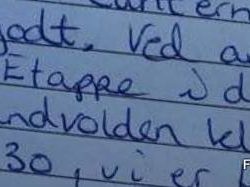 godt. Ved a
Etappe i d
ndvolden kl
30, vi er
F